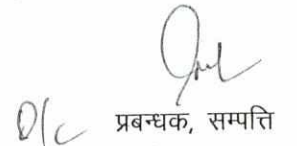 O/c प्रबन्धक, सम्पत्ति